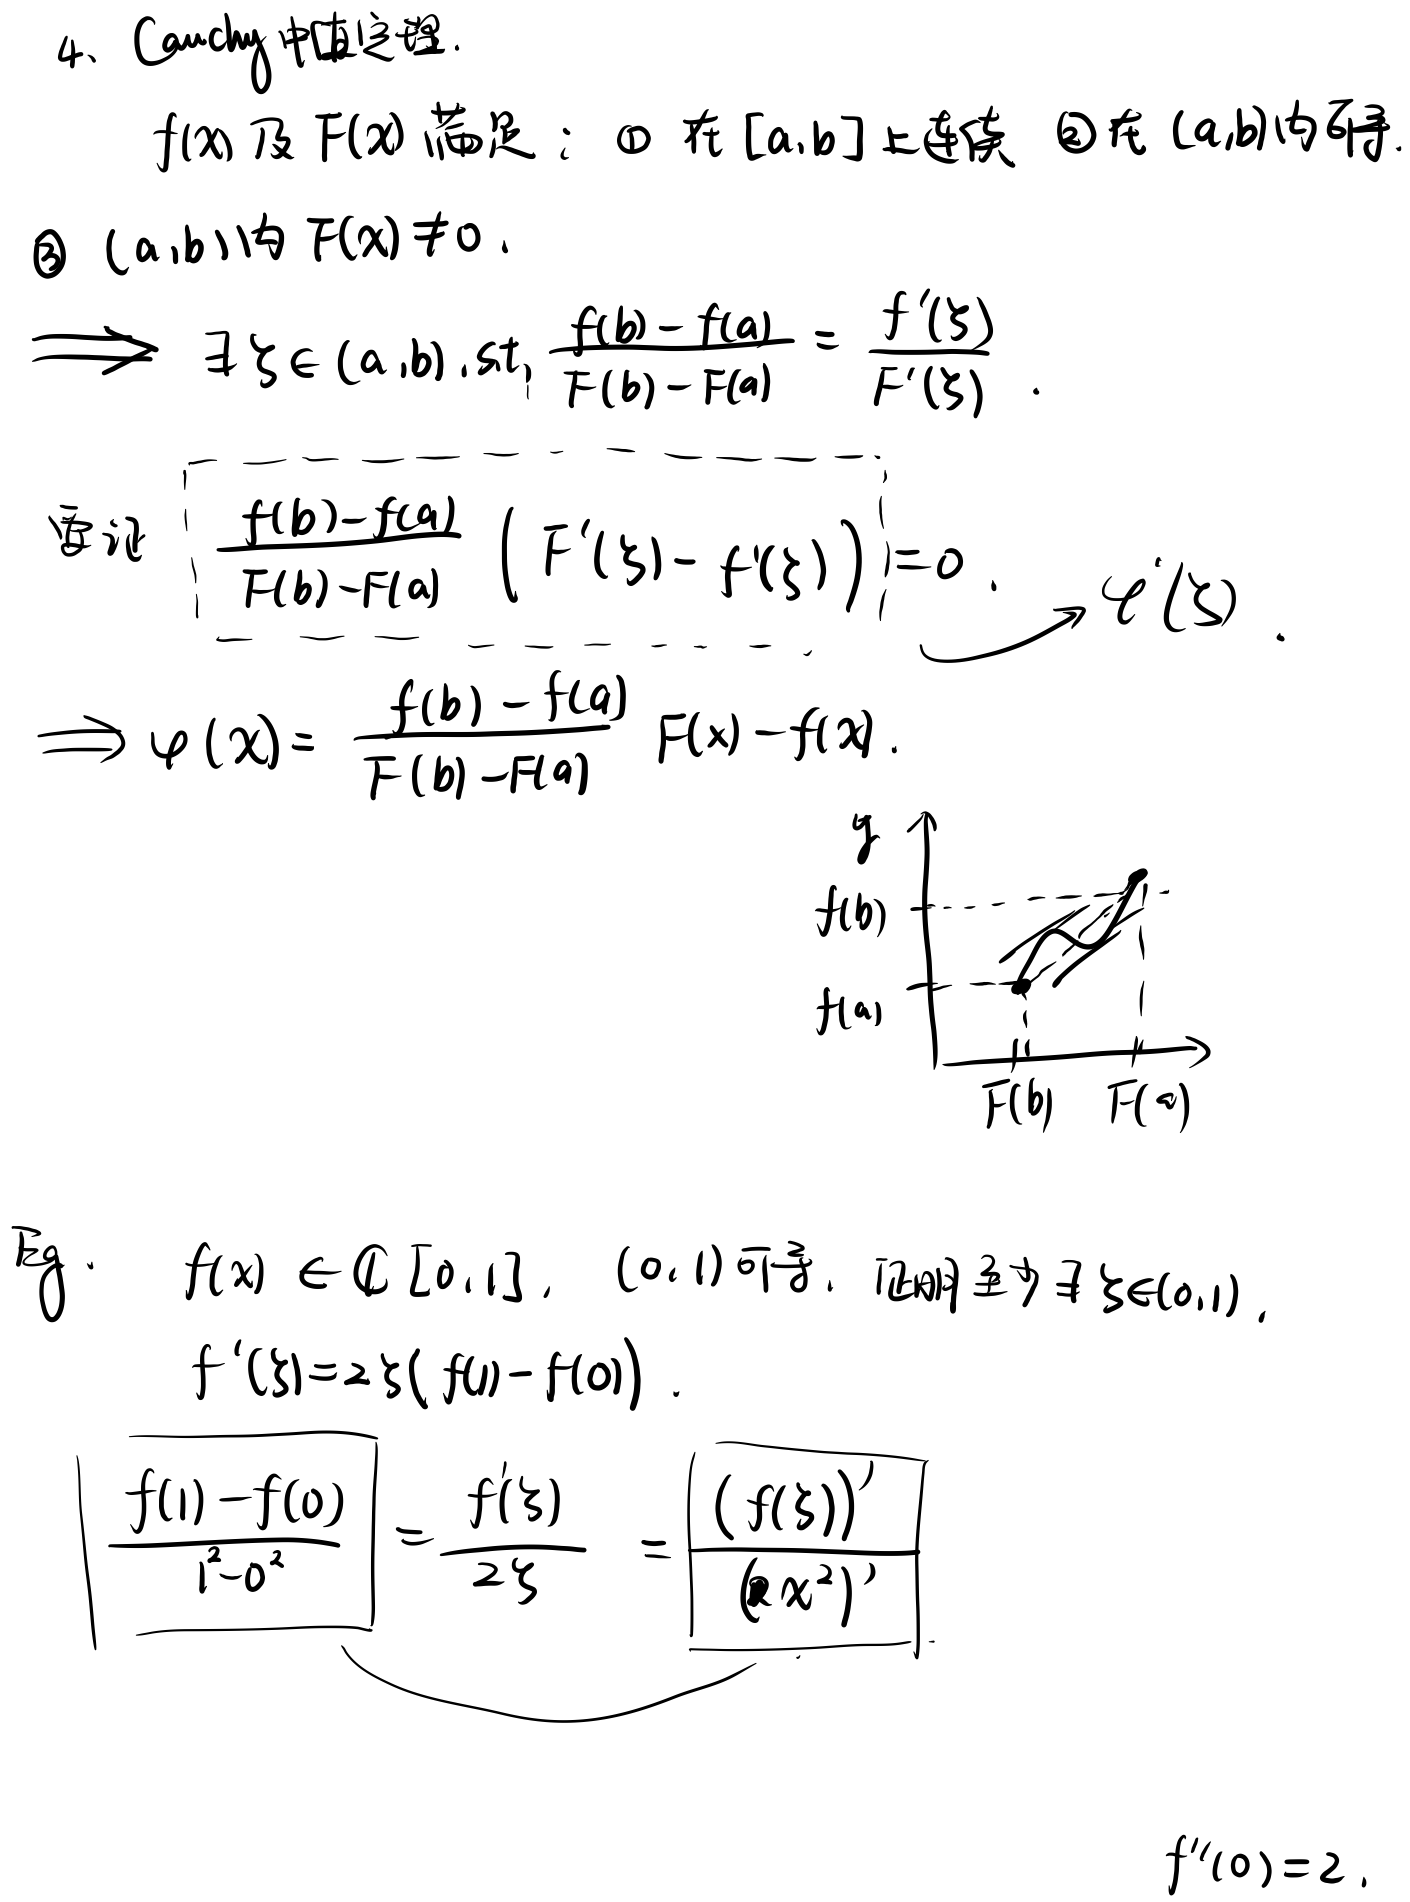 4、Cauchy中值定理.
f(x) 及 F(x) 满足：① 在 [a,b] 上连续 ② 在 (a,b)内可导.
③ (a,b)内 F(x)≠0.
⟹ ∃ξ∈(a,b), s.t, \frac{f(b)-f(a)}{F(b)-F(a)} = \frac{f'(ξ)}{F'(ξ)}.
要证 \frac{f(b)-f(a)}{F(b)-F(a)} (F'(ξ)-f'(ξ))=0. → φ'(ξ).
⟹ φ(x)= \frac{f(b)-f(a)}{F(b)-F(a)} F(x)-f(x).
y
f(b)
f(a)
F(b) F(a)
Eg. f(x)∈C[0,1], (0,1)可导, 证明至少∃ξ∈(0,1),
f'(ξ)=2ξ(f(1)-f(0)).
\frac{f(1)-f(0)}{1^2-0^2} = \frac{f'(ξ)}{2ξ} = \frac{(f(ξ))'}{(x^2)'}
f''(0)=2,